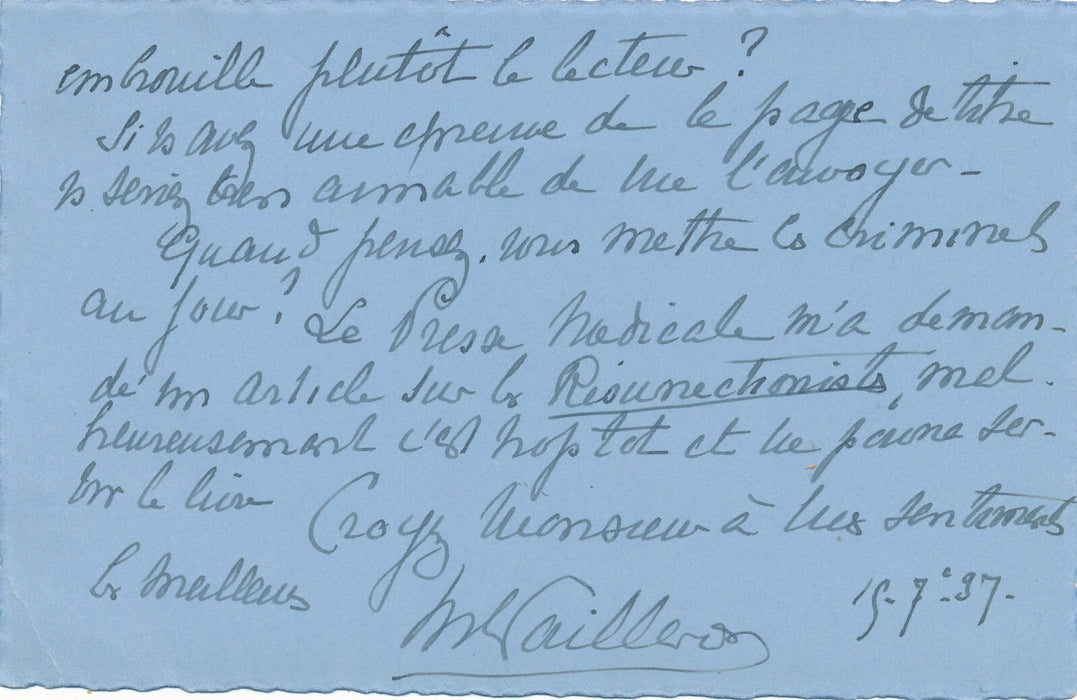 embrouille plutôt le lecteur ?
Si vs avez une épreuve de la page de titre
vs seriez bien aimable de me l'envoyer -
Quand pensez-vous mettre les criminels
au jour ? La Presse Médicale m'a deman-
dé un article sur les Résurrectionists, mal-
heureusement c'est trop tôt et ne pourra ser-
vir le livre Croyez Monsieur à mes sentiments
les meilleurs
15.7.37.